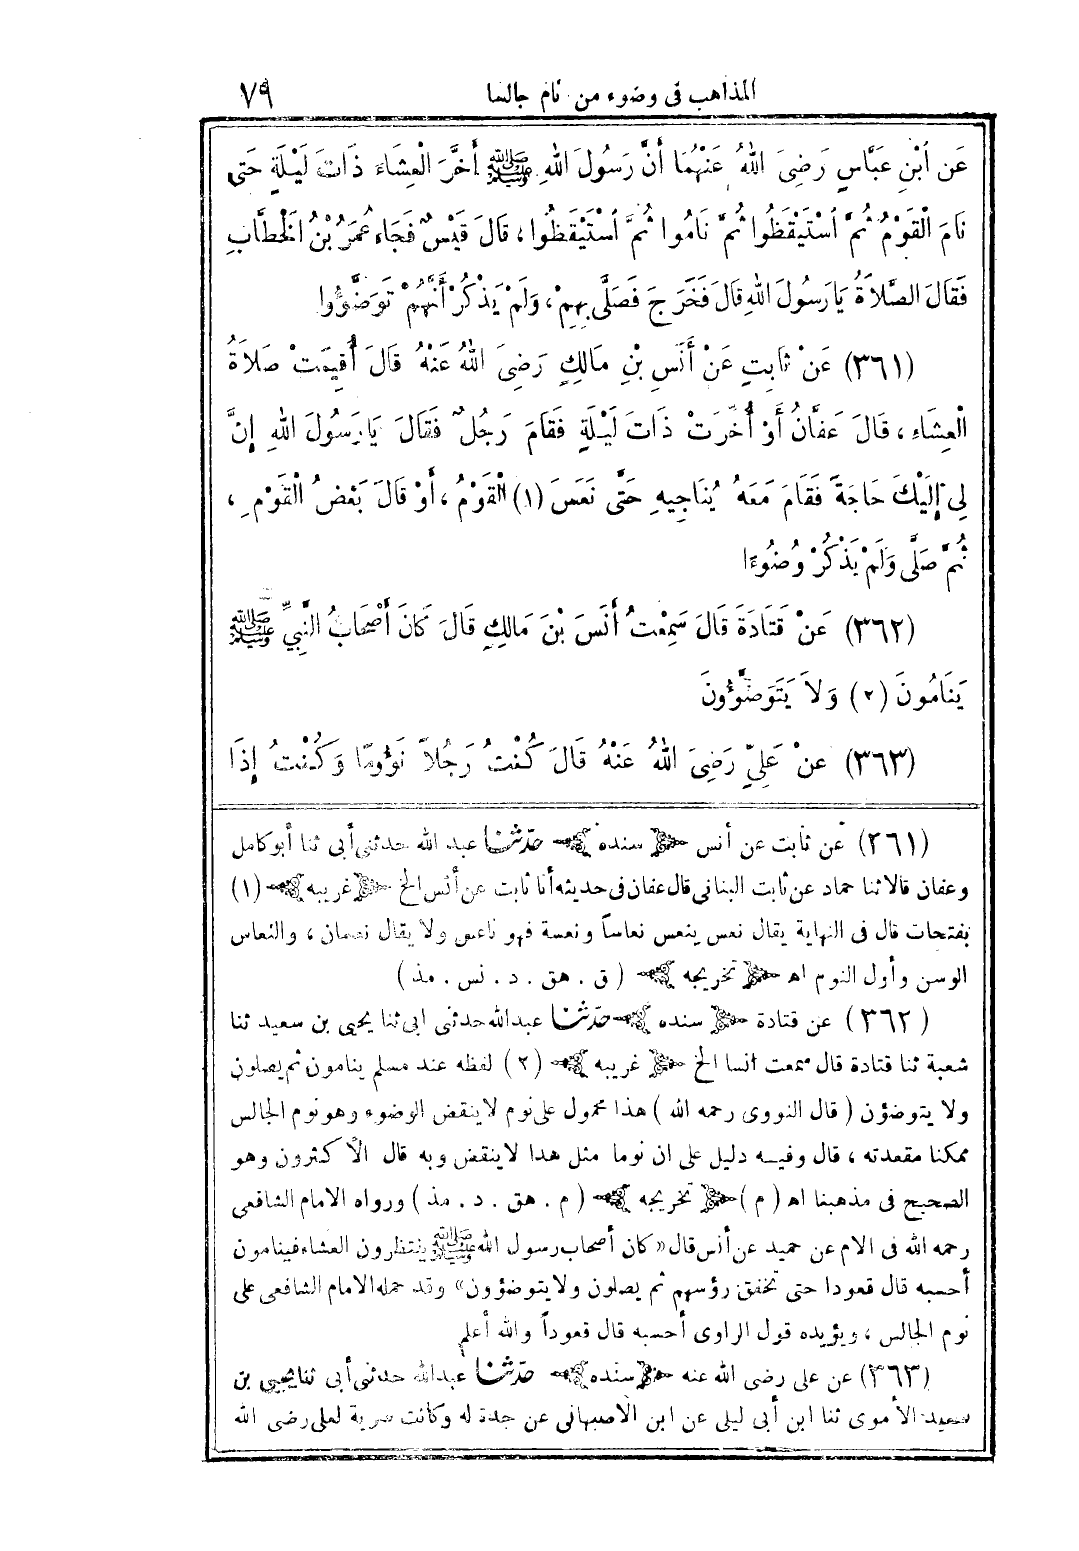 المذاهب فى وضوء من نام جالسا ٧٩
عَنِ ٱبْنِ عَبَّاسٍ رَضِىَ اللهُ عَنْهُمَا أَنَّ رَسُولَ اللهِ ﷺ أَخَّرَ الْعِشَاءَ ذَاتَ لَيْلَةٍ حَتَّى
نَامَ الْقَوْمُ ثُمَّ ٱسْتَيْقَظُوا ثُمَّ نَامُوا ثُمَّ ٱسْتَيْقَظُوا، قَالَ قَيْسٌ فَجَاءَ عُمَرُ بْنُ الْخَطَّابِ
فَقَالَ الصَّلاَةُ يَارَسُولَ اللهِ قَالَ فَخَرَجَ فَصَلَّى بِهِمْ، وَلَمْ يَذْكُرْ أَنَّهُمْ تَوَضَّؤُوا
(٣٦١) عَنْ ثَابِتٍ عَنْ أَنَسِ بْنِ مَالِكٍ رَضِىَ اللهُ عَنْهُ قَالَ أُقِيمَتْ صَلاَةُ
الْعِشَاءِ، قَالَ عَفَّانُ أَوْ أُخِّرَتْ ذَاتَ لَيْلَةٍ فَقَامَ رَجُلٌ فَقَالَ يَارَسُولَ اللهِ إِنَّ
لِى إِلَيْكَ حَاجَةً فَقَامَ مَعَهُ يُنَاجِيهِ حَتَّى نَعَسَ (١) الْقَوْمُ، أَوْ قَالَ بَعْضُ الْقَوْمِ،
ثُمَّ صَلَّى وَلَمْ يَذْكُرْ وُضُوءًا
(٣٦٢) عَنْ قَتَادَةَ قَالَ سَمِعْتُ أَنَسَ بْنَ مَالِكٍ قَالَ كَانَ أَصْحَابُ النَّبِىِّ ﷺ
يَنَامُونَ (٢) وَلاَ يَتَوَضَّؤُونَ
(٣٦٣) عَنْ عَلِىٍّ رَضِىَ اللهُ عَنْهُ قَالَ كُنْتُ رَجُلاً نَؤُومًا وَكُنْتُ إِذَا
(٣٦١) عن ثابت عن أنس ﴿سنده﴾ حدّثنا عبد الله حدثنى أبى ثنا أبو كامل
وعفان قالا ثنا حماد عن ثابت البنانى قال عفان فى حديثه أنا ثابت عن أنس الخ ﴿غريبه﴾ (١)
بفتحات قال فى النهاية يقال نعس ينعس نعاساً ونعسة فهو ناعس ولا يقال نعسان، والنعاس
الوسن وأول النوم اه ﴿تخريجه﴾ (ق. هق. د. نس. مذ)
(٣٦٢) عن قتادة ﴿سنده﴾ حدّثنا عبد الله حدثنى ابى ثنا يحيى بن سعيد ثنا
شعبة ثنا قتادة قال سمعت انسا الخ ﴿غريبه﴾ (٢) لفظه عند مسلم ينامون ثم يصلون
ولا يتوضؤن (قال النووى رحمه الله) هذا محمول على نوم لا ينقض الوضوء وهو نوم الجالس
ممكنا مقعدته، قال وفيه دليل على ان نوما مثل هدا لا ينقض وبه قال الأكثرون وهو
الصحيح فى مذهبنا اه (م) ﴿تخريجه﴾ (م. هق. د. مذ) ورواه الامام الشافعى
رحمه الله فى الام عن حميد عن أنس قال «كان أصحاب رسول الله ﷺ ينتظرون العشاء فينامون
أحسبه قال قعودا حتى تخفق رؤسهم ثم يصلون ولا يتوضؤون» وقد حمله الامام الشافعى على
نوم الجالس، ويؤيده قول الراوى أحسبه قال قعوداً والله أعلم
(٣٦٣) عن على رضى الله عنه ﴿سنده﴾ حدّثنا عبد الله حدثنى أبى ثنا يحيى بن
سعيد الأموى ثنا ابن أبى ليلى عن ابن الاصبهانى عن جدة له وكانت سرية لعلى رضى الله